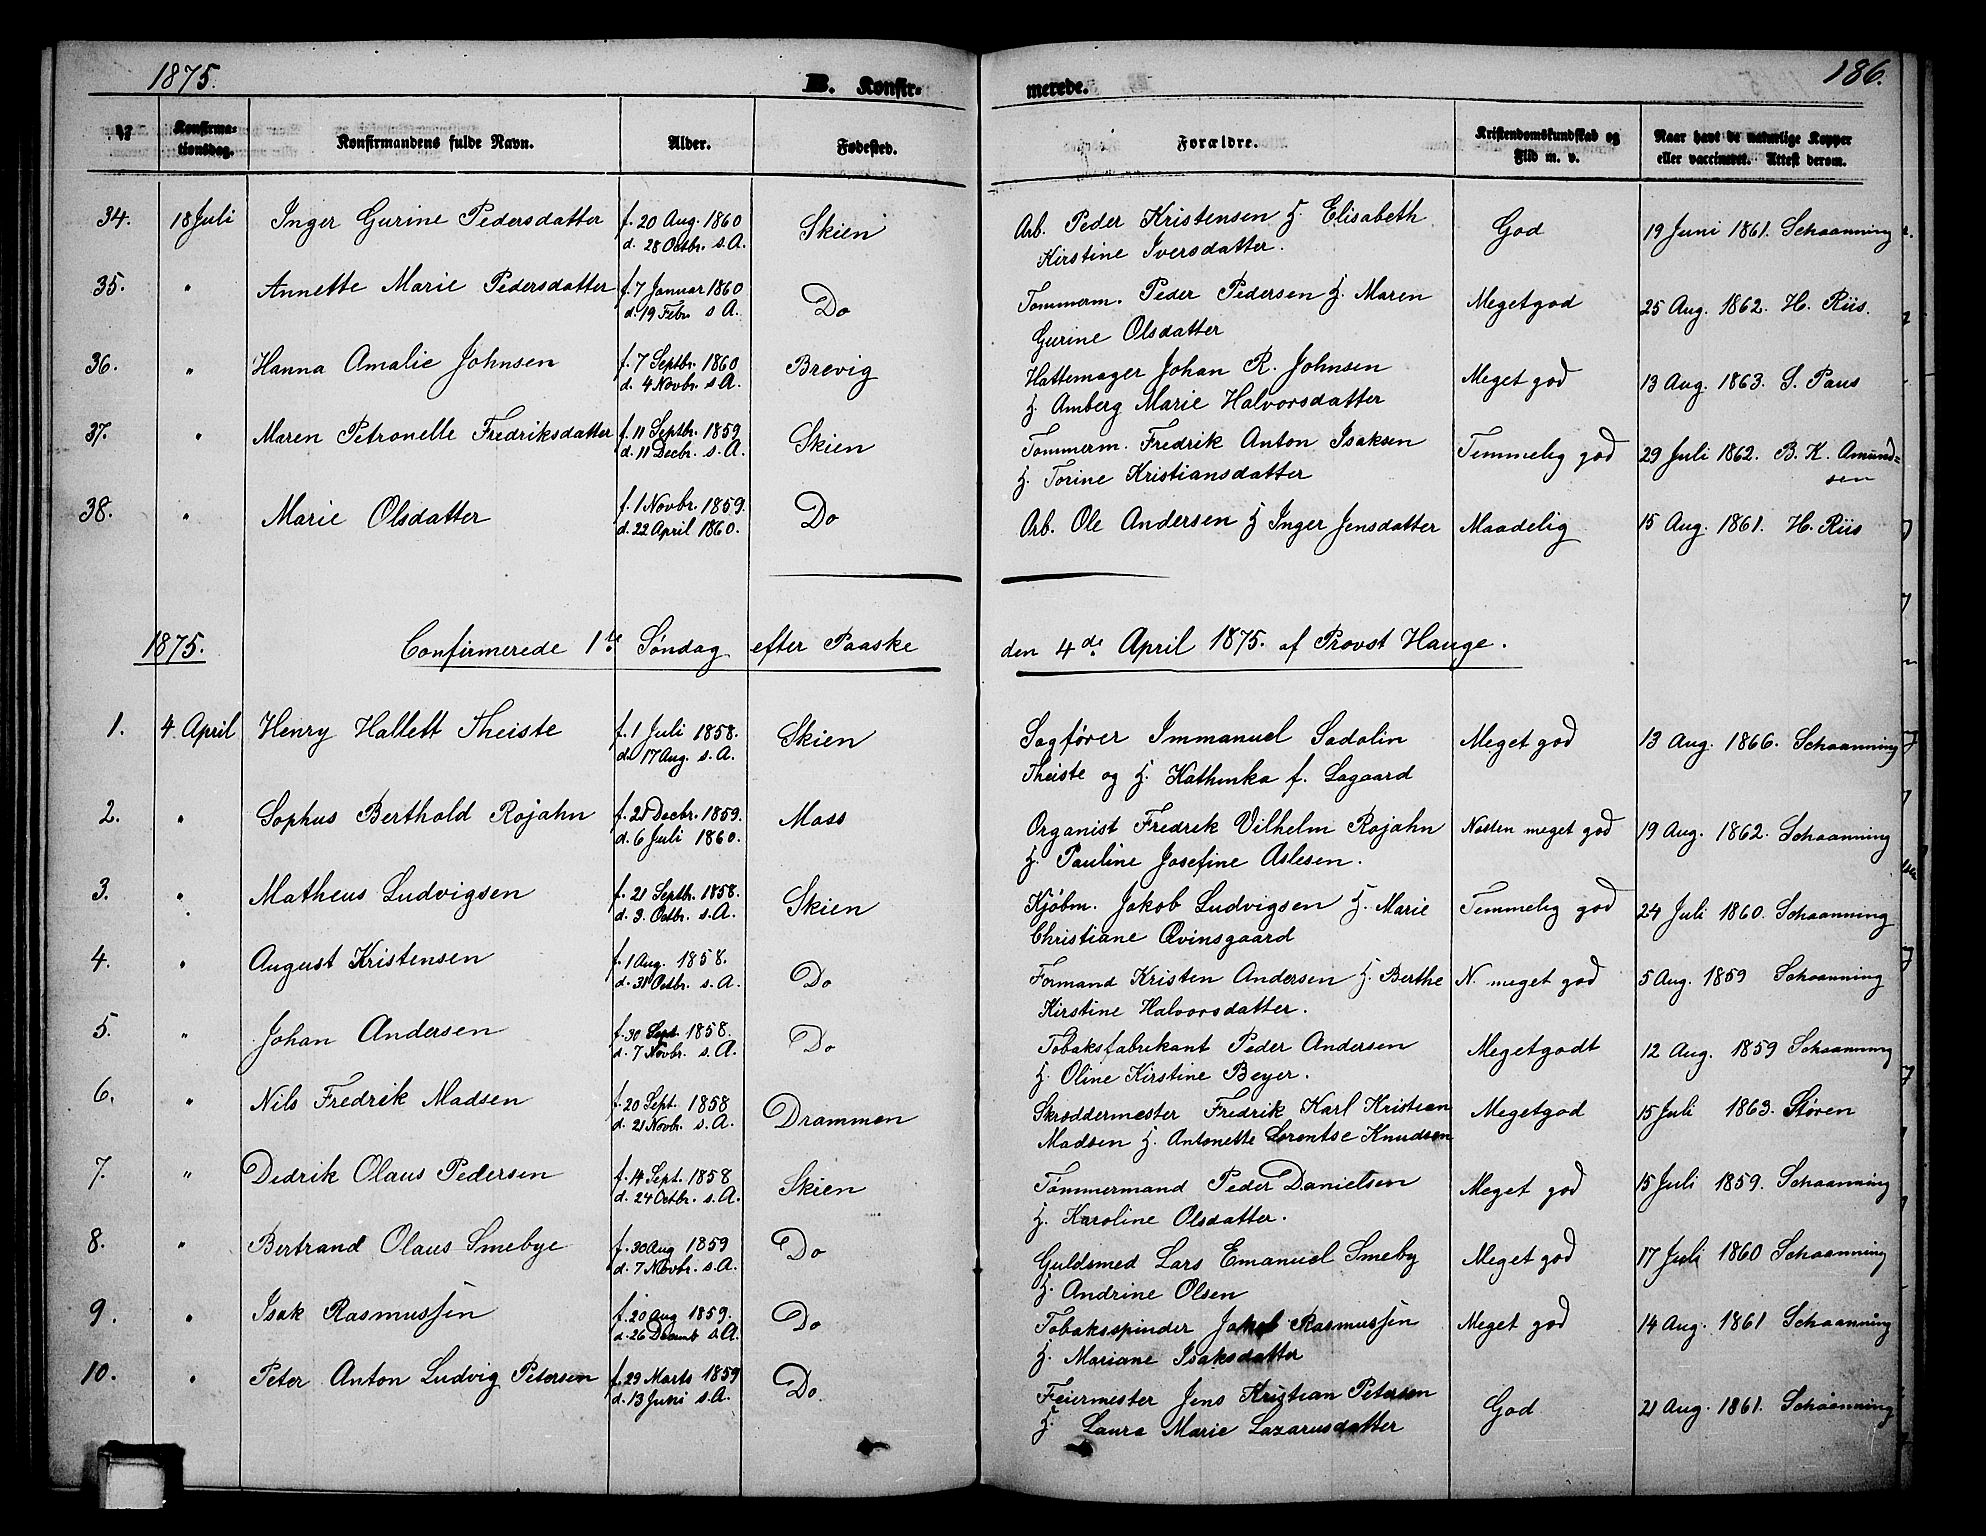 1875.
B. Konfir-
merede.
186.
№ Konfirma-tionsdag. Konfirmandens fulde Navn. Alder. Fødested. Forældre. Kristendomskundskab og Flid m. v. Naar havt de naturlige Kopper eller vaccineret. Attest derom.
34. 18 Juli Inger Gurine Pedersdatter f. 20 Aug. 1860 Skien Arb. Peder Kristensen H. Elisabeth God 19 Juni 1861. Schaanning
d. 28 Octbr. s. A. Kirstine Iversdatter.
35. " Annette Marie Pedersdatter f. 7 Januar 1860 Do Tømmerm. Peder Pedersen H. Maren Meget god 25 Aug. 1862. H. Riis.
d. 19 Febr. s A. Gurine Olsdatter
36. " Hanna Amalie Johnsen f. 7 Septbr. 1860 Brevig Hattemager Johan R. Johnsen Meget god 13 Aug. 1863. S. Paus
d. 4 Novbr. s. A. H. Amberg Marie Halvorsdatter
37. " Maren Petronelle Fredriksdatter f. 11 Septbr. 1859 Skien Tømmerm. Fredrik Anton Isaksen Temmelig god 29 Juli 1862. B. K. Amund=
d. 11 Decbr. s. A. H. Torine Kristiansdatter sen
38. " Marie Olsdatter f. 1 Novbr. 1859. Do Arb. Ole Andersen H Inger Jensdatter Maadelig 15 Aug. 1861. H. Riis
d. 22 April 1860.
1875. Confirmerede 1te Søndag efter Paaske den 4de April 1875. af Provst Hauge.
1. 4 April Henry Hallett Theiste f. 1 Juli 1858. Skien Sagfører Immanuel Sadolin Meget god 13 Aug. 1866. Schaanning
d. 17 Aug. s. A. Theiste og H. Kathinka f. Lagaard
2. " Sophus Berthold Rojahn f. 21 Decbr. 1859. Moss Organist Fredrik Vilhelm Rojahn Næsten meget god 19 Aug. 1862. Schaanning
d. 6 Juli 1860. H. Pauline Josefine Aslesen.
3. " Matheus Ludvigsen f. 21 Septbr. 1858. Skien Kjøbm. Jakob Ludvigsen H. Marie Temmelig god 24 Juli 1860. Schaanning
d. 3. Octbr. s. A. Christiane Qvinsgaard
4. " August Kristensen f. 1 Aug. 1858. Do Formand Kristen Andersen H. Berthe N. meget god 5 Aug. 1859 Schaanning
d. 31 Octbr. s. A. Kirstine Halvorsdatter.
5. " Johan Andersen f. 30 Sept. 1858. Do Tobaksfabrikant Peder Andersen Meget godt 12 Aug. 1859 Schaanning
d. 7 Novbr. s. A. H. Oline Kirstine Beyer.
6. " Nils Fredrik Madsen f. 20 Sept. 1858 Drammen Skræddermester Fredrik Karl Kristian Meget god 15 Juli 1863. Støren
d. 21 Novbr. s. A. Madsen H. Antonette Lorentse Knudsen
7. " Didrik Olaus Pedersen f. 14 Sept. 1858 Skien Tømmermand Peder Danielsen Meget god 15 Juli 1859. Schaanning
d. 24 Octbr. s. A. H. Karoline Olsdatter.
8. " Bertrand Olaus Smebye f. 30 Aug 1859 Do Guldsmed Lars Emanuel Smeby Meget god 17 Juli 1860 Schaanning
d. 7 Novbr. s. A. H. Andrine Olsen
9. " Isak Rasmussen f. 20 Aug 1859. Do Tobaksspinder Jakob Rasmussen Meget god 14 Aug. 1861 Schaanning
d. 26 Decemb s. A. H. Mariane Isaksdatter
10. " Peter Anton Ludvig Petersen f. 29 Marts 1859 Do. Feiermester Jens Kristian Petersen God 21 Aug. 1861. Schaanning
d. 13 Juni s. A. H. Laura Marie Lazarusdatter